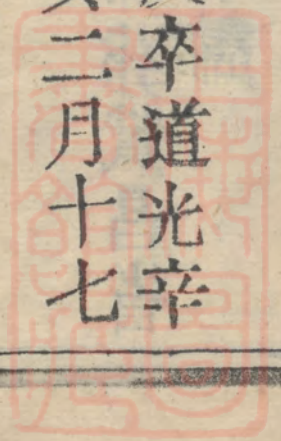 卒道光辛
二月十七